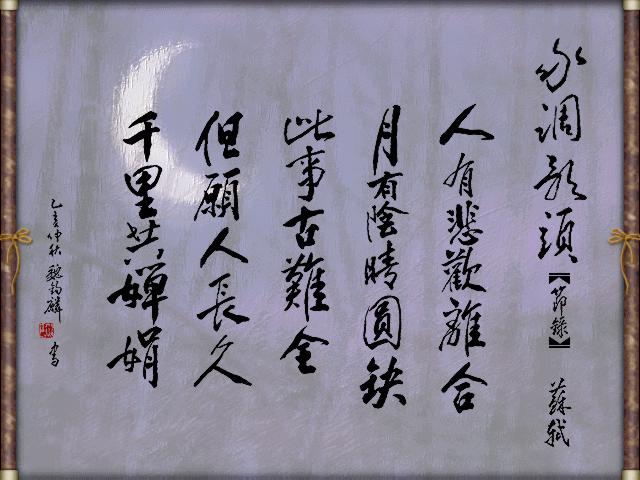 水調歌頭【節錄】 蘇軾
人有悲歡離合
月有陰晴圓缺
此事古難全
但願人長久
千里共嬋娟
乙亥仲秋 魏鈞麟 書